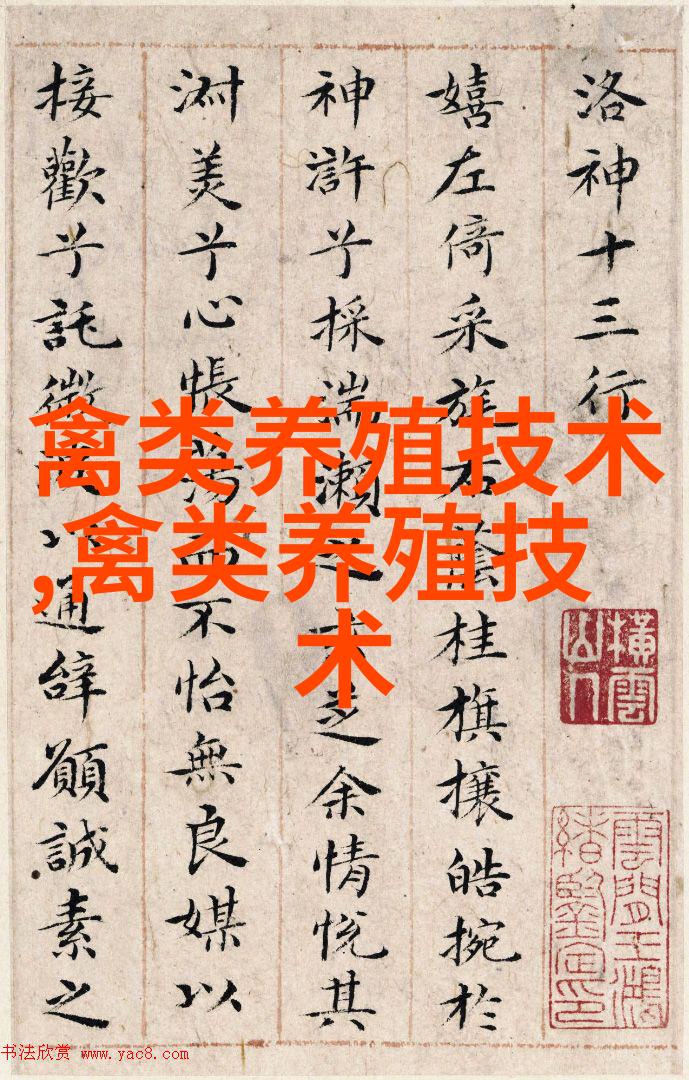 洛神十三行
嬉左倚采旄右蔭桂旗攘皓捥於
神滸兮採湍瀨之玄芝余情悅其
淑美兮心悵蕩而不怡無良媒以
接歡兮託微波以通辝願誠素之
禽类养殖技术
,禽类养殖技
术
橫雲山人
雲間王鴻緒鑒定印
书法欣赏 www.yac8.com